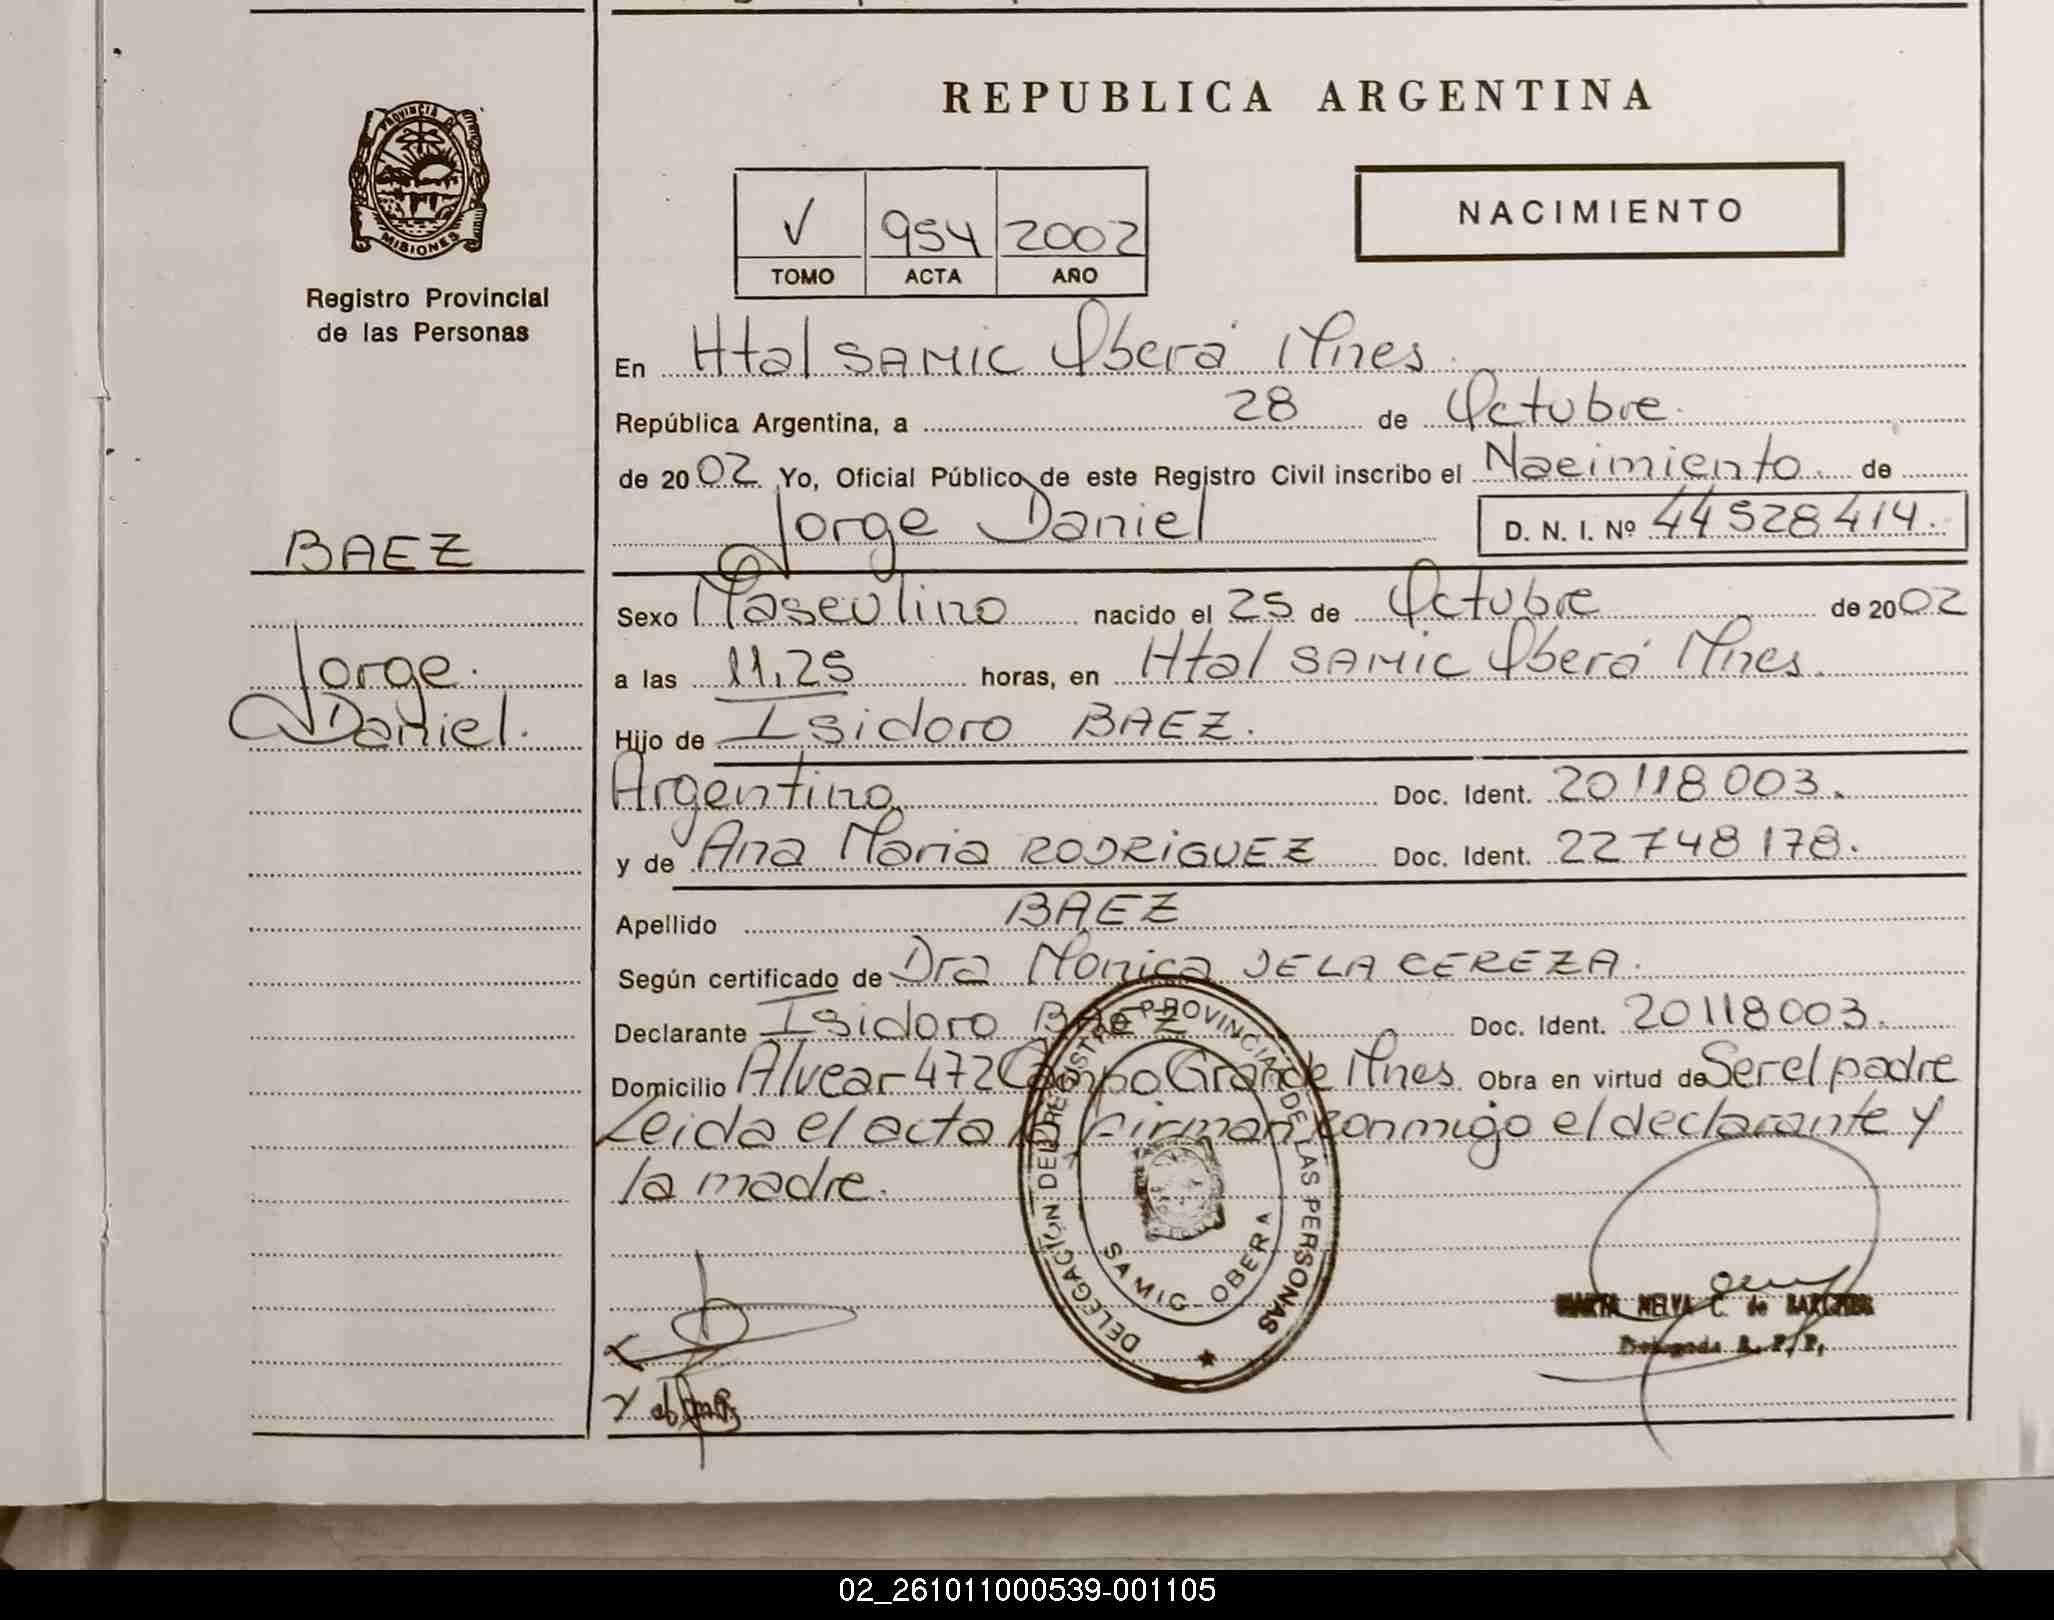 REPUBLICA ARGENTINA
PROVINCIA DE MISIONES
Registro Provincial
de las Personas
V 954 2002
TOMO ACTA AÑO
NACIMIENTO
En Htal SAMIC Oberá Mnes.
República Argentina, a 28 de Octubre.
de 2002 Yo, Oficial Público de este Registro Civil inscribo el Nacimiento de
Jorge Daniel D. N. I. Nº 44528414.
BAEZ
Jorge.
Daniel.
Sexo Masculino nacido el 25 de Octubre de 2002
a las 11,25 horas, en Htal SAMIC Oberá Mnes.
Hijo de Isidoro BAEZ.
Argentino, Doc. Ident. 20118003.
y de Ana Maria RODRIGUEZ Doc. Ident. 22748178.
Apellido BAEZ
Según certificado de Dra Mónica DE LA CEREZA.
Declarante Isidoro BAEZ Doc. Ident. 20118003.
Domicilio Alvear 472 Campo Grande Mnes Obra en virtud de Ser el padre
Leida el acta la firman conmigo el declarante y
la madre.
DELEGACIÓN DEL REGISTRO PROVINCIAL DE LAS PERSONAS
SAMIC - OBERA
MELVA C. de
R. P. P.
02_261011000539-001105